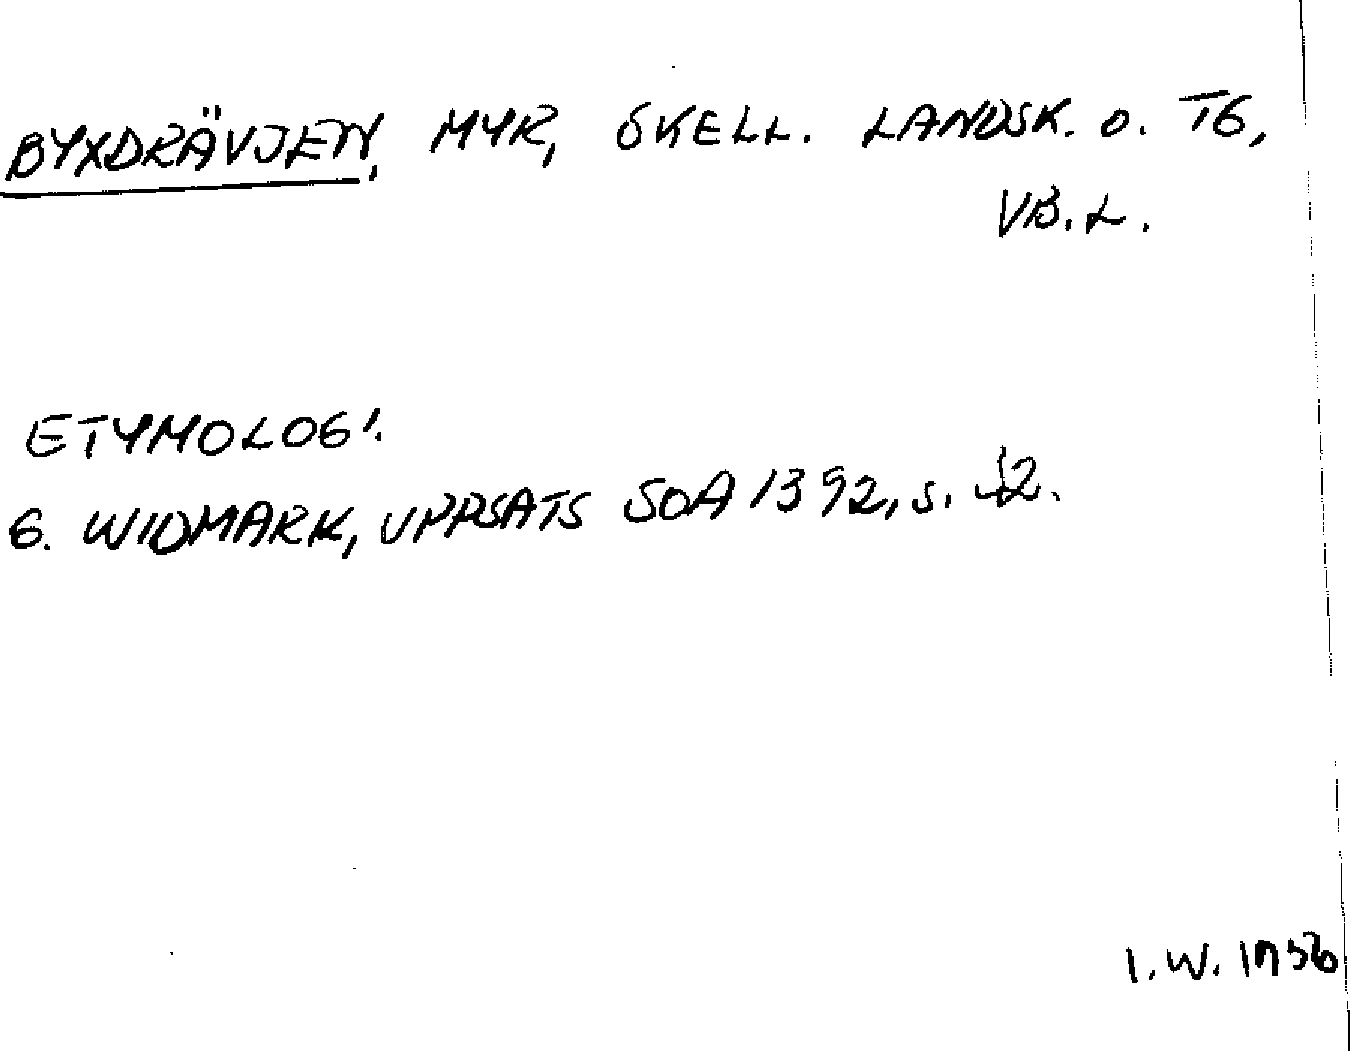 BYXDRÄVJEN, MYR, SKELL. LANDSK. O. TG,
VB.L.
ETYMOLOGI.
G. WIDMARK, UPPSATS SOA 1392, S.
I.W. 1956